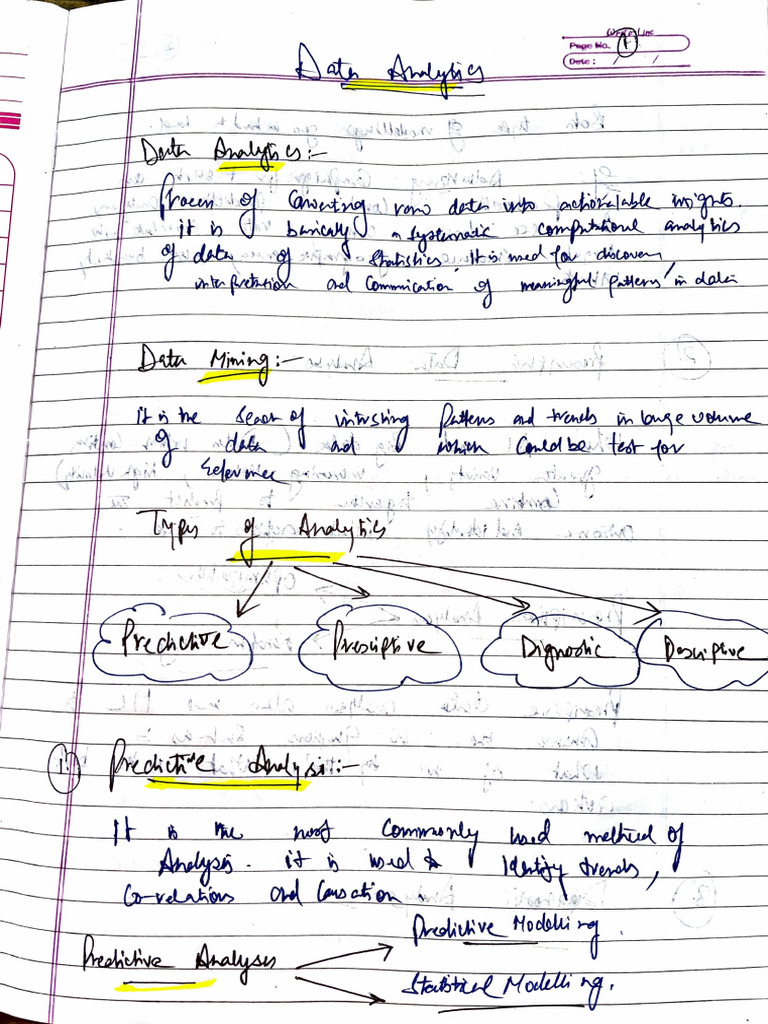 Write Line
Page No. 1
Date : / /
Data Analytics
Data Analytics :-
Process of Converting raw data into actionalable insights.
it is basically a systematic computational analytics
of data of statistics. It is used for discovery,
interpretation and Commnication of meaningful patterns in data
Data Mining :-
it is the Search of intrsting patterns and trends in large volume
of data and which Could be test for
relevance
Types of Analytics
Predictive Prescriptive Dignostic Descriptive
1. Predictive Analysis :-
It is the most Commonly used method of
Analysis. it is used to Identify trends,
Co-relations and Causation.
Predictive Modelling.
Predictive Analyses
Statistical Modelling.